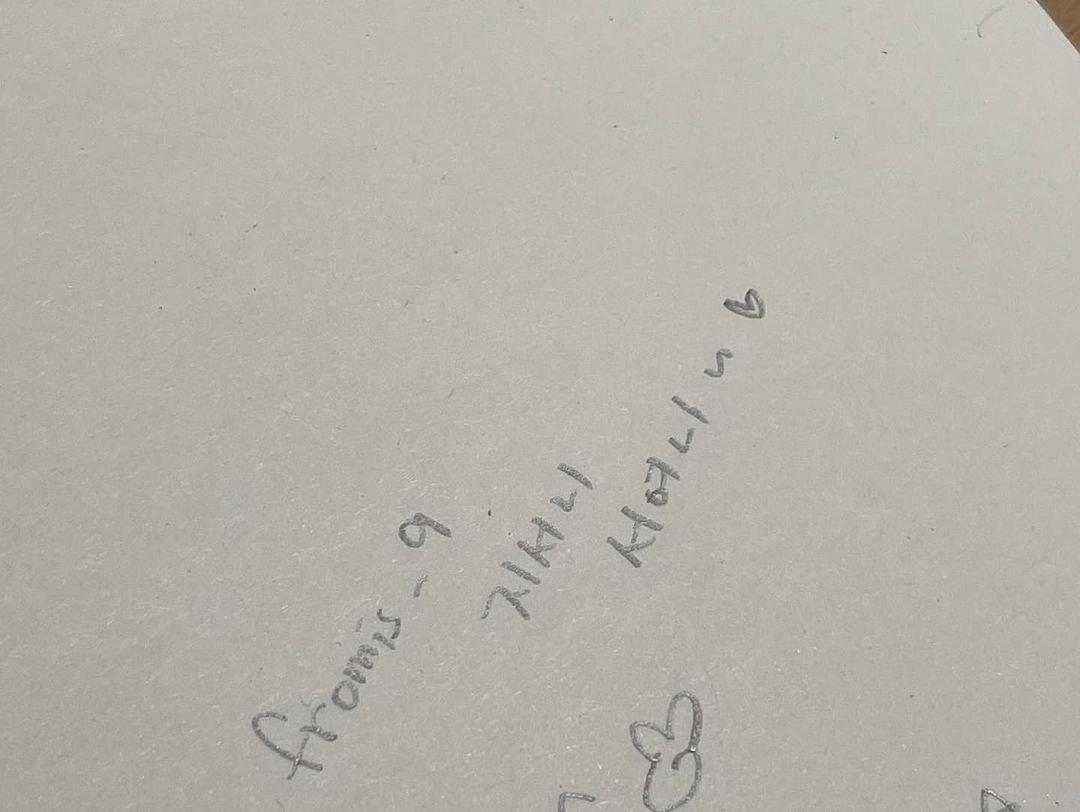 fromis_9
지서니
서여니 ~ ♡